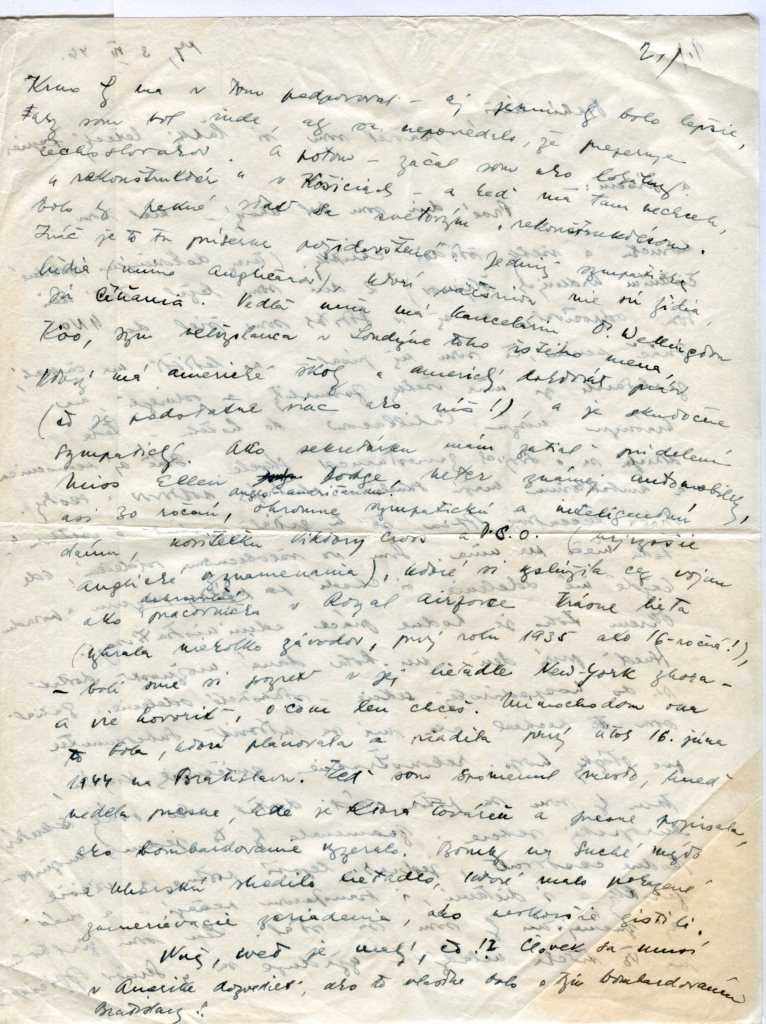 2./
Keno by ma v tom podporoval – aj by bolo lepšie,
aby som bol inde, aby sa nepovedalo, že preferuje
čechoslovákov. A potom – začal som ako
"rekonštruktér" v Košiciach – a keď ma tam nechceli,
bolo by pekné stať sa svetovým "rekonštruktérom".
Ináč je to tu príšerne "požidovštené". Jediní sympatickí
ľudia (mimo Angličanov), ktorí väčšinou nie sú židia,
sú Číňania. Vedľa mňa má kanceláriu Dr. Wellington
Koo, syn veľvyslanca v Londýne toho istého mena,
ktorý má americké školy a americký doktorát práv
(čo je podstatne viac ako náš!), a je skutočne
sympatický. Ako sekretárku mám zatiaľ pridelenú
Miss Ellen Dodge, dcér známej automobilky,
angloameričanku.
asi 30 ročnú, ohromne sympatickú a inteligentnú
dámu, nositeľku Viktory Cross a D.S.O. (najvyššie
anglické vyznamenania), ktoré si zaslúžila cez vojnu
dobrovoľ.
ako pracovníčka v Royal Airforce. Krásne lieta
(vyhrala niekoľko závodov, prvý roku 1935 ako 16-ročná!),
– boli sme si pozreť v jej lietadle New York zhora –
a vie hovoriť, o čom len chceš. Mimochodom ona
to bola, ktorá plánovala a riadila prvý útok 16. júna
1944 na Bratislavu. Keď som spomenul mesto, hneď
vedela presne, kde je ktorá továreň a presne popísala,
ako bombardovanie vyzeralo. Bomby na Suché mýto
a shodilo lietadlo, ktoré malo pokazené
zameriavacie zariadenia, ako neskoršie zistili.
Nuž, svet je malý, čo!? Človek sa musí
v Amerike dozvedieť, ako to vlastne bolo s tým bombardovaním
Bratislavy!